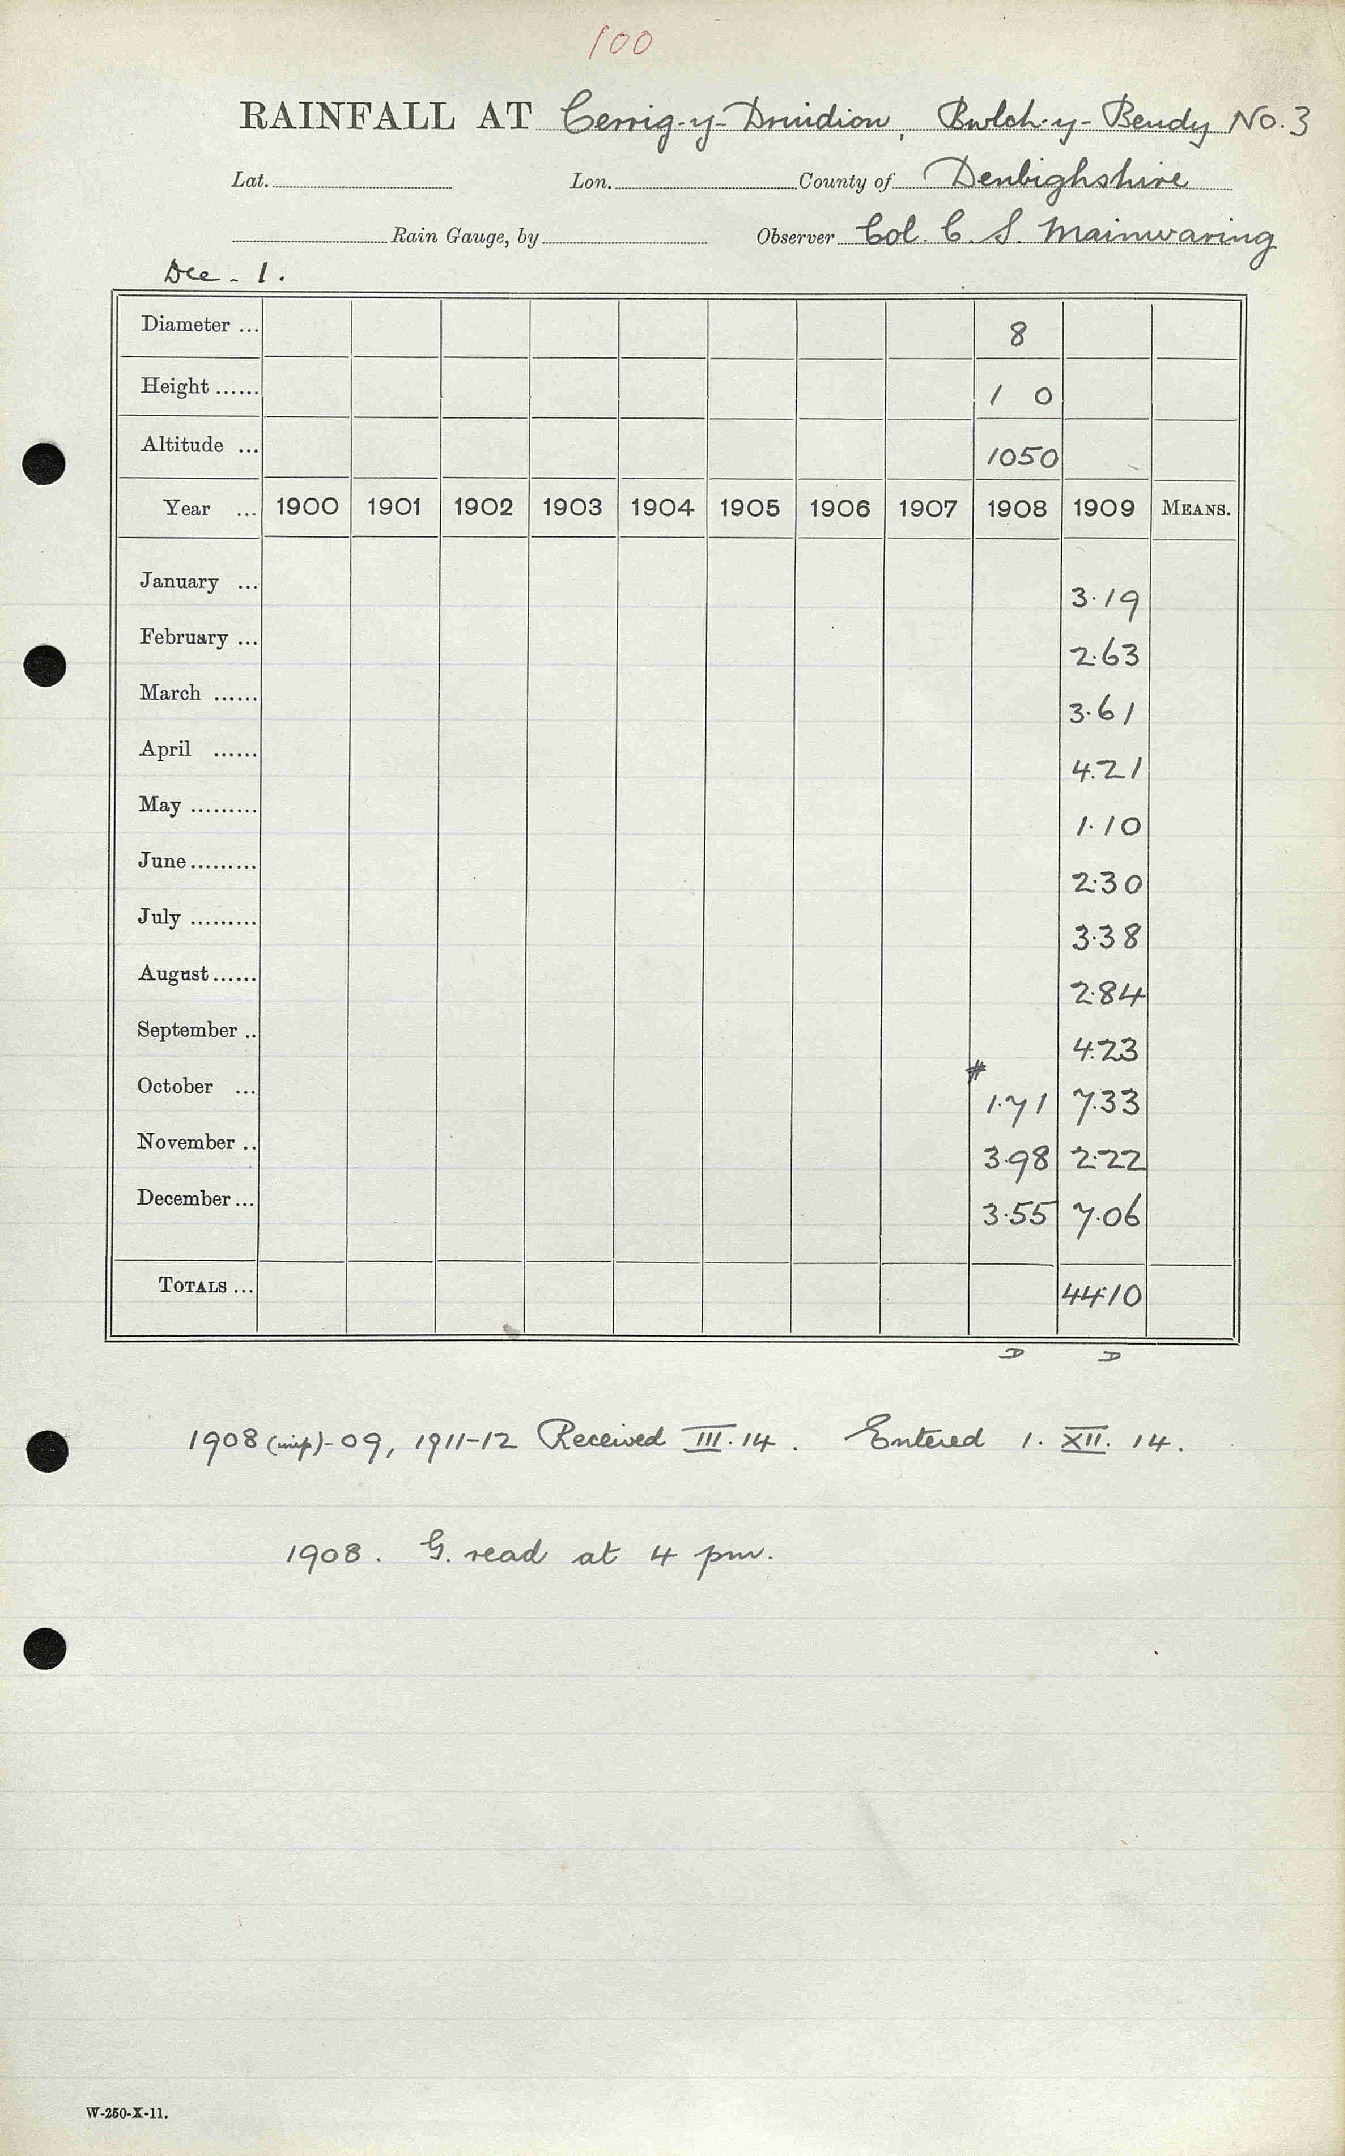 100
RAINFALL AT Cerrig-y-Druidion, Bwlch-y-Bendy No. 3
Lat. Lon. County of Denbighshire
Rain Gauge, by Observer Col. C. S. Mainwaring
Dec - 1.
Diameter ... 8
Height ...... 1 0
Altitude ... 1050
Year ... 1900 1901 1902 1903 1904 1905 1906 1907 1908 1909 MEANS.
January ... 3.19
February ... 2.63
March ...... 3.61
April ...... 4.21
May ......... 1.10
June ......... 2.30
July ......... 3.38
August ...... 2.84
September .. 4.23
October ... # 1.71 7.33
November .. 3.98 2.22
December ... 3.55 7.06
TOTALS ... 44.10
D D
1908 (imp)-09, 1911-12 Received III.14. Entered 1. XII. 14.
1908. G. read at 4 pm.
W-250-X-11.